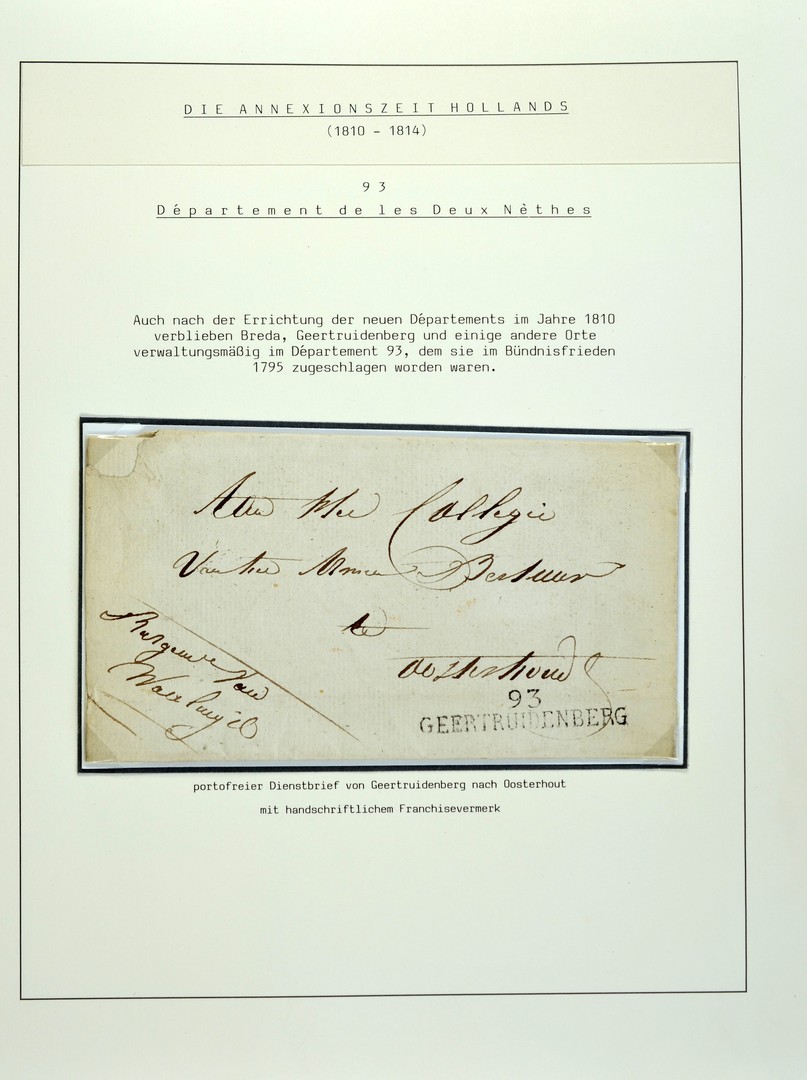 DIE ANNEXIONSZEIT HOLLANDS
(1810 - 1814)
93
Département de les Deux Nèthes
Auch nach der Errichtung der neuen Départements im Jahre 1810
verblieben Breda, Geertruidenberg und einige andere Orte
verwaltungsmäßig im Département 93, dem sie im Bündnisfrieden
1795 zugeschlagen worden waren.
Aan Het Collegie
Van het Armen Bestuur
te
Oosterhout
93
GEERTRUIDENBERG
van
portofreier Dienstbrief von Geertruidenberg nach Oosterhout
mit handschriftlichem Franchisevermerk